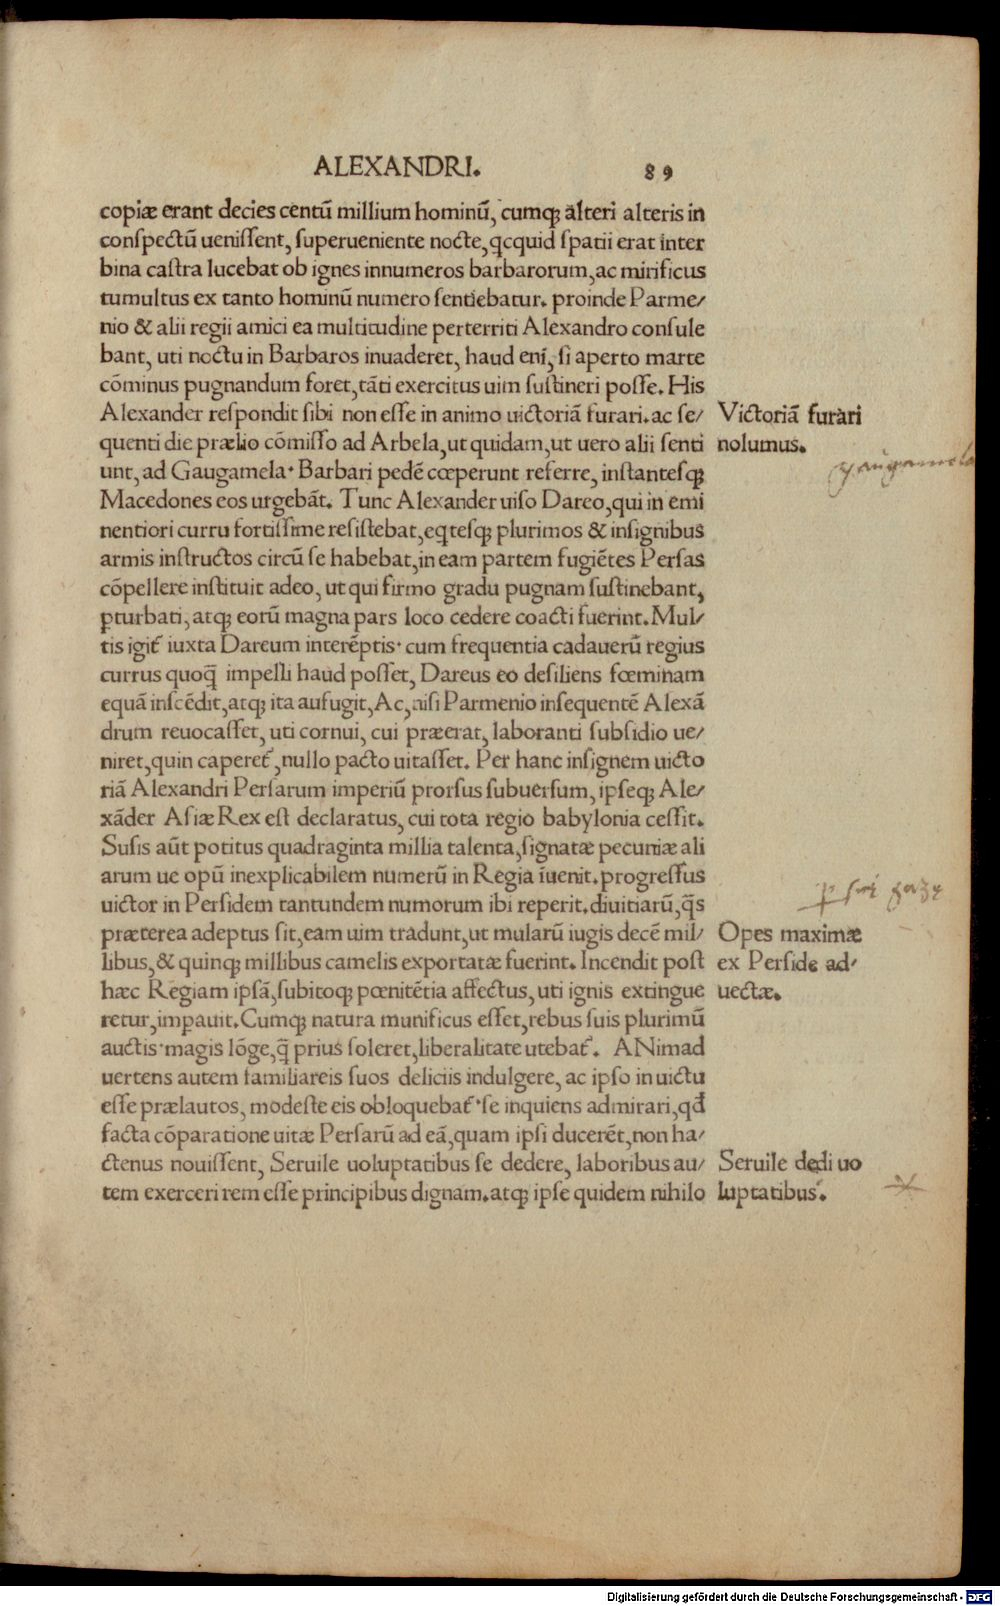 ALEXANDRI. 89
copiæ erant decies centū millium hominū, cumqꝫ alteri alteris in
conspectū uenissent, superueniente nocte, qcquid spatii erat inter
bina castra lucebat ob ignes innumeros barbarorum, ac mirificus
tumultus ex tanto hominū numero sentiebatur. proinde Parme/
nio & alii regii amici ea multitudine perterriti Alexandro consule
bant, uti noctu in Barbaros inuaderet, haud eni, si aperto marte
cōminus pugnandum foret, tāti exercitus uim sustineri posse. His
Alexander respondit sibi non esse in animo uictoriā furari. ac se/
quenti die prælio cōmisso ad Arbela, ut quidam, ut uero alii senti
unt, ad Gaugamela· Barbari pedē cœperunt referre, instantesqꝫ
Macedones eos urgebāt. Tunc Alexander uiso Dareo, qui in emi
nentiori curru fortissime resistebat, eqtesqꝫ plurimos & insignibus
armis instructos circū se habebat, in eam partem fugiētes Persas
cōpellere instituit adeo, ut qui firmo gradu pugnam sustinebant,
ꝑturbati, atqꝫ eorū magna pars loco cedere coacti fuerint. Mul/
tis igit᷑ iuxta Dareum interēptis· cum frequentia cadauerū regius
currus quoq̄ impelli haud posset, Dareus eo desiliens fœminam
equā inscēdit, atqꝫ ita aufugit, Ac, nisi Parmenio insequentē Alexā
drum reuocasset, uti cornui, cui præerat, laboranti subsidio ue/
niret, quin caperet᷑, nullo pacto uitasset. Per hanc insignem uicto
riā Alexandri Persarum imperiū prorsus subuersum, ipseqꝫ Ale/
xāder Asiæ Rex est declaratus, cui tota regio babylonia cessit.
Susis aūt potitus quadraginta millia talenta, signatæ pecuniæ ali
arum ue opū inexplicabilem numerū in Regia īuenit. progressus
uictor in Persidem tantundem numorum ibi reperit. diuitiarū, q̄s
præterea adeptus sit, eam uim tradunt, ut mularū iugis decē mil/
libus, & quinqꝫ millibus camelis exportatæ fuerint. Incendit post
hæc Regiam ipsā, subitoqꝫ pœnitētia affectus, uti ignis extingue
retur, imꝑauit. Cumqꝫ natura munificus esset, rebus suis plurimū
auctis· magis lōge, q̄ prius soleret, liberalitate utebat᷑. ANimad
uertens autem familiareis suos deliciis indulgere, ac ipso in uictu
esse prælautos, modeste eis obloquebat᷑· se inquiens admirari, qđ
facta cōparatione uitæ Persarū ad eā, quam ipsi ducerēt, non ha/
ctenus nouissent, Seruile uoluptatibus se dedere, laboribus au/
tem exerceri rem esse principibus dignam. atqꝫ ipse quidem nihilo
Victoriā furari
nolumus.
gaugamela
Opes maximæ
ex Perside ad/
uectæ.
Seruile dedi uo
luptatibus.
Digitalisierung gefördert durch die Deutsche Forschungsgemeinschaft - DFG